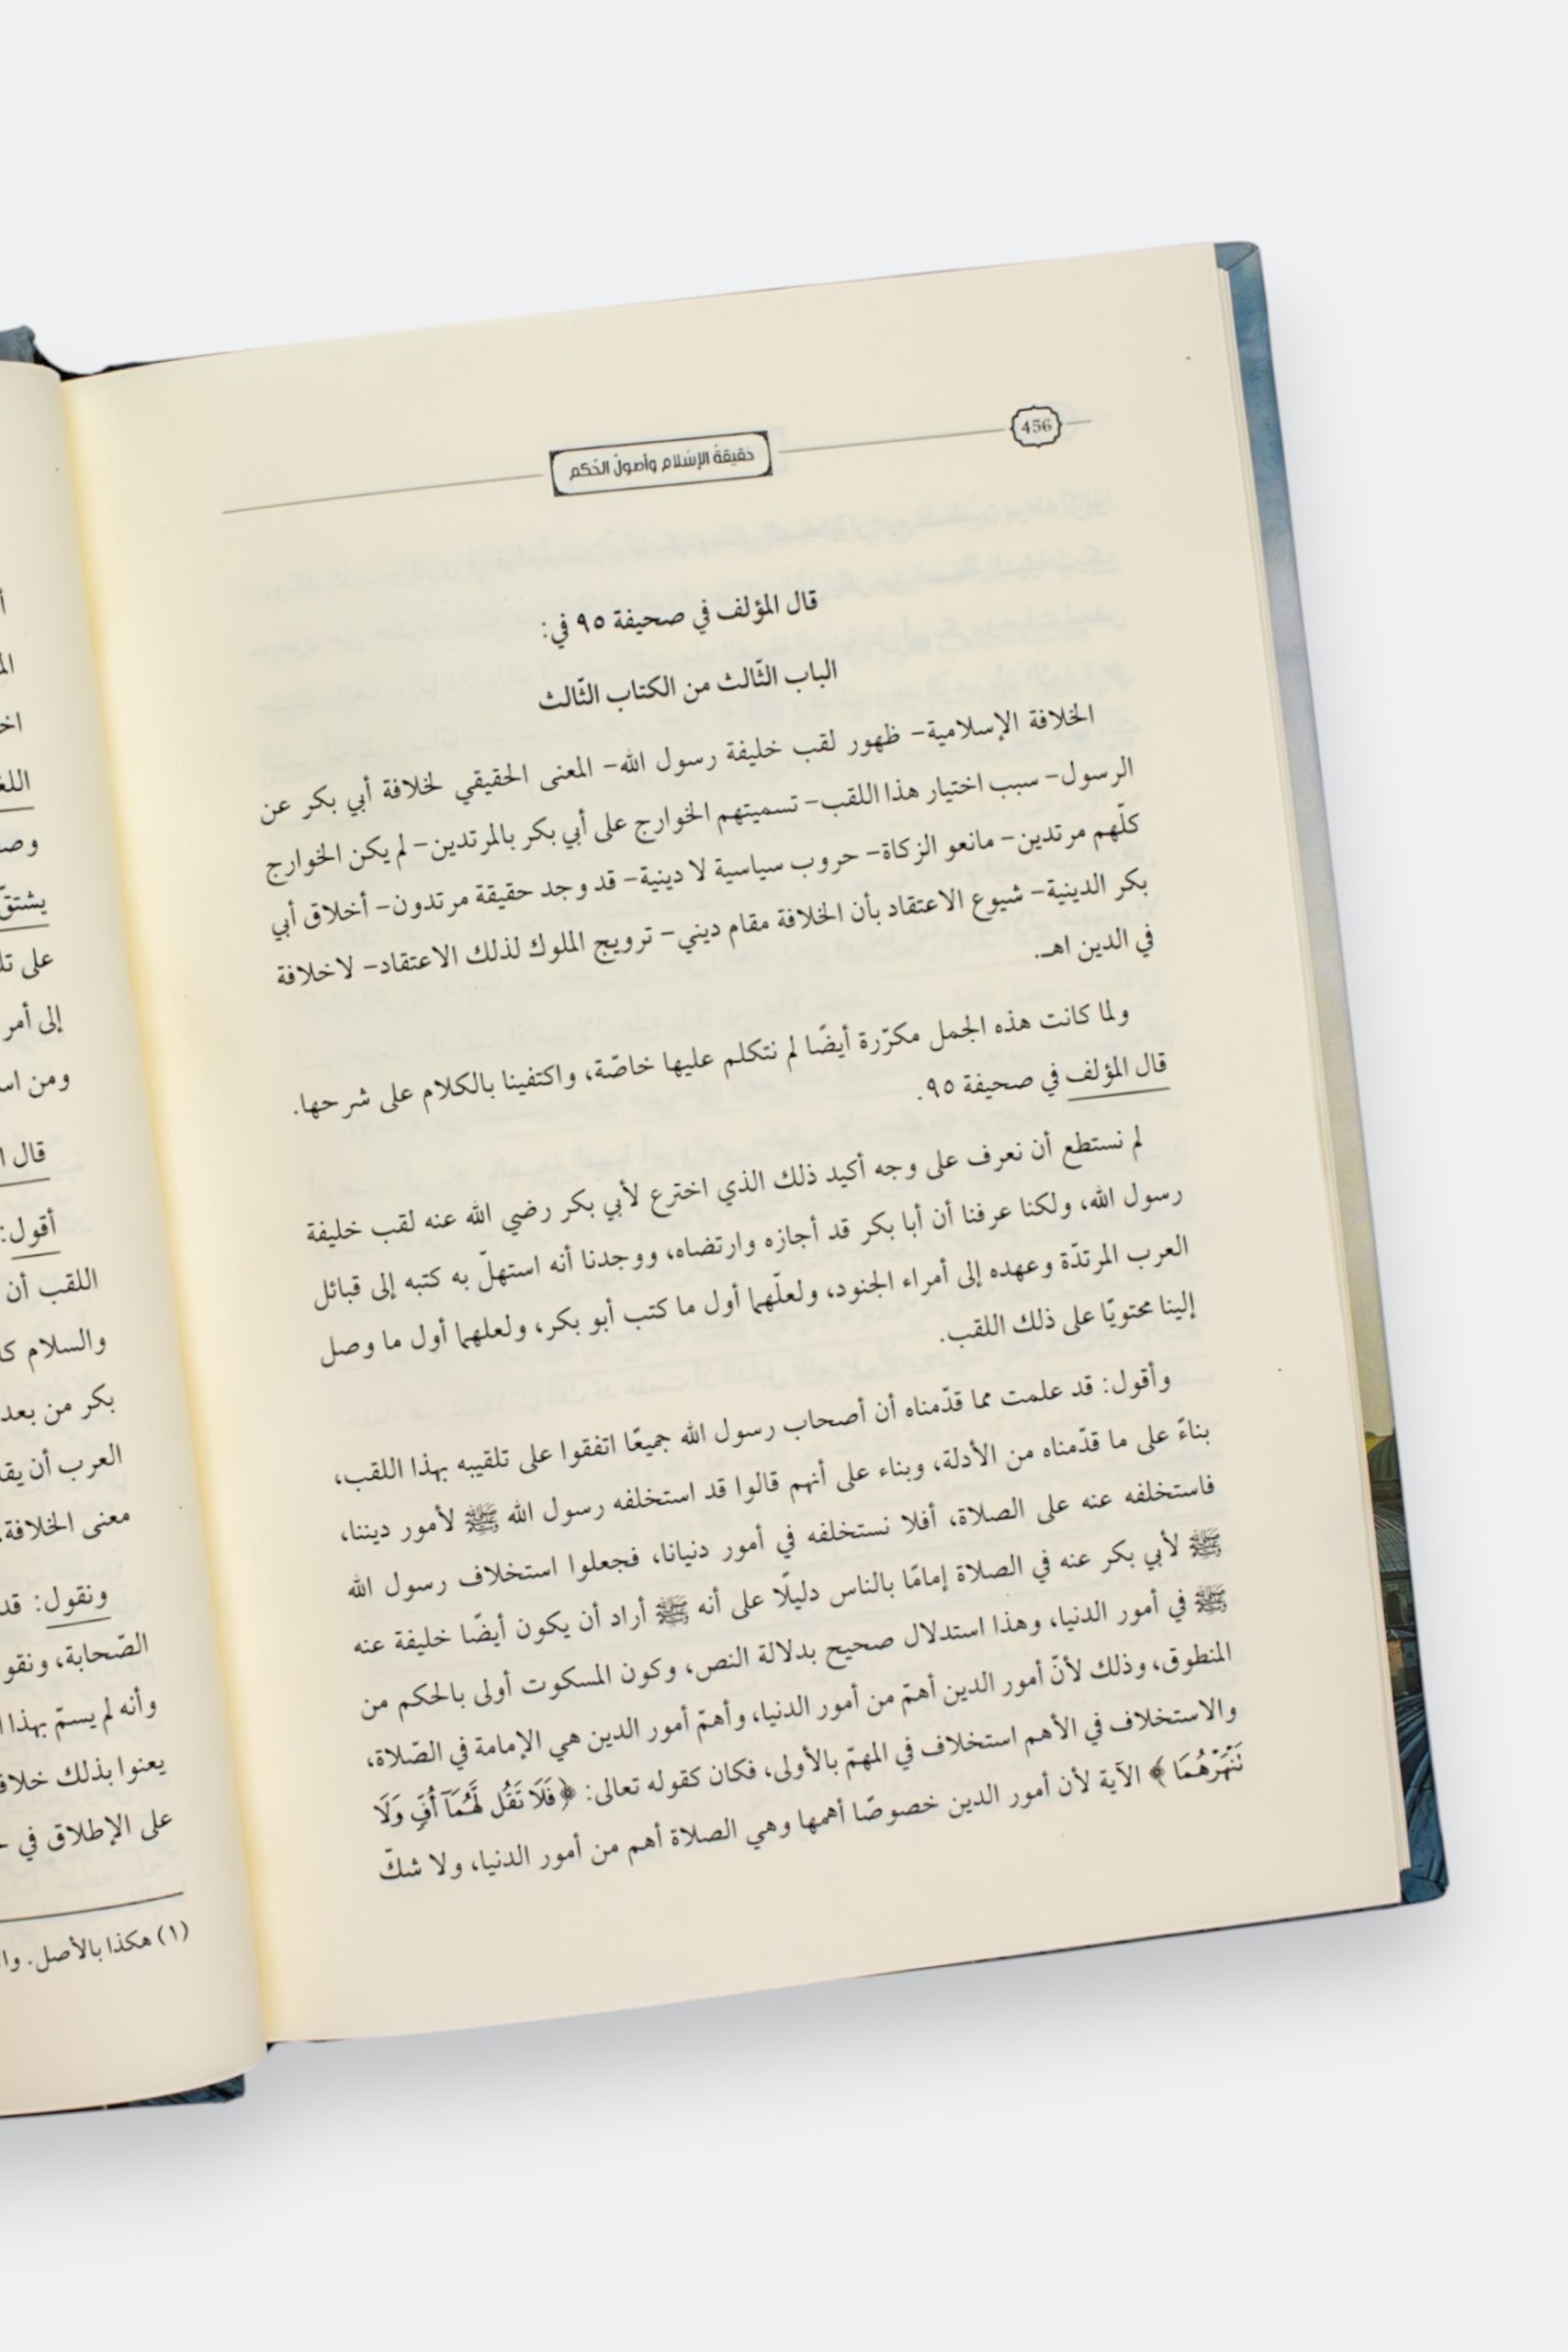 456
حقيقة الإسلام وأصول الحكم
قال المؤلف في صحيفة ٩٥ في:
الباب الثّالث من الكتاب الثّالث
الخلافة الإسلامية- ظهور لقب خليفة رسول الله- المعنى الحقيقي لخلافة أبي بكر عن
الرسول- سبب اختيار هذا اللقب- تسميتهم الخوارج على أبي بكر بالمرتدين- لم يكن الخوارج
كلّهم مرتدين- مانعو الزكاة- حروب سياسية لا دينية- قد وجد حقيقة مرتدون- أخلاق أبي
بكر الدينية- شيوع الاعتقاد بأن الخلافة مقام ديني- ترويج الملوك لذلك الاعتقاد- لا خلافة
في الدين اهـ.
ولما كانت هذه الجمل مكرّرة أيضًا لم نتكلم عليها خاصّة، واكتفينا بالكلام على شرحها.
قال المؤلف في صحيفة ٩٥.
لم نستطع أن نعرف على وجه أكيد ذلك الذي اخترع لأبي بكر رضي الله عنه لقب خليفة
رسول الله، ولكنا عرفنا أن أبا بكر قد أجازه وارتضاه، ووجدنا أنه استهلّ به كتبه إلى قبائل
العرب المرتدّة وعهده إلى أمراء الجنود، ولعلّهما أول ما كتب أبو بكر، ولعلهما أول ما وصل
إلينا محتويًا على ذلك اللقب.
وأقول: قد علمت مما قدّمناه أن أصحاب رسول الله جميعًا اتفقوا على تلقيبه بهذا اللقب،
بناءً على ما قدّمناه من الأدلة، وبناء على أنهم قالوا قد استخلفه رسول الله ﷺ لأمور ديننا،
فاستخلفه عنه على الصلاة، أفلا نستخلفه في أمور دنيانا، فجعلوا استخلاف رسول الله
ﷺ لأبي بكر عنه في الصلاة إمامًا بالناس دليلًا على أنه ﷺ أراد أن يكون أيضًا خليفة عنه
ﷺ في أمور الدنيا، وهذا استدلال صحيح بدلالة النص، وكون المسكوت أولى بالحكم من
المنطوق، وذلك لأنّ أمور الدين أهمّ من أمور الدنيا، وأهمّ أمور الدين هي الإمامة في الصّلاة،
والاستخلاف في الأهم استخلاف في المهمّ بالأولى، فكان كقوله تعالى: ﴿فَلَا تَقُل لَّهُمَآ أُفٍّ وَلَا
نَنْهَرْهُمَا﴾ الآية لأن أمور الدين خصوصًا أهمها وهي الصلاة أهم من أمور الدنيا، ولا شكّ
وصـ
يشتقّ
على تلـ
إلى أمر
ومن اسـ
قال ا
أقول:
اللقب أن
والسلام كـ
بكر من بعد
العرب أن يقا
معنى الخلافة
ونقول: قد
الصّحابة، ونقو
وأنه لم يسمّ بهذا ا
يعنوا بذلك خلافـ
على الإطلاق في
(١) هكذا بالأصل. وا